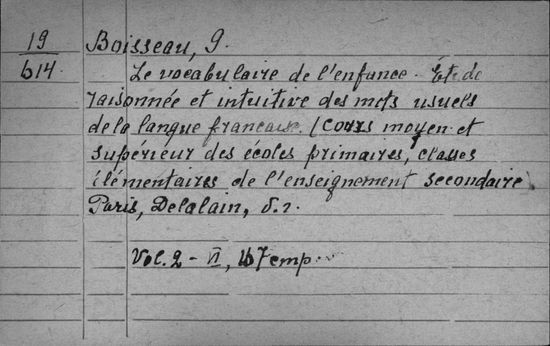 19
614
Boisseau, J.
Le vocabulaire de l'enfance. Etude
raisonnée et intuitive des mots usuels
de la langue francaise. (Cours moyen et
supérieur des écoles primaires, classes
élémentaires de l'enseignement secondaire)
Paris, Delalain, s.a.
Vol. 2 - VI,